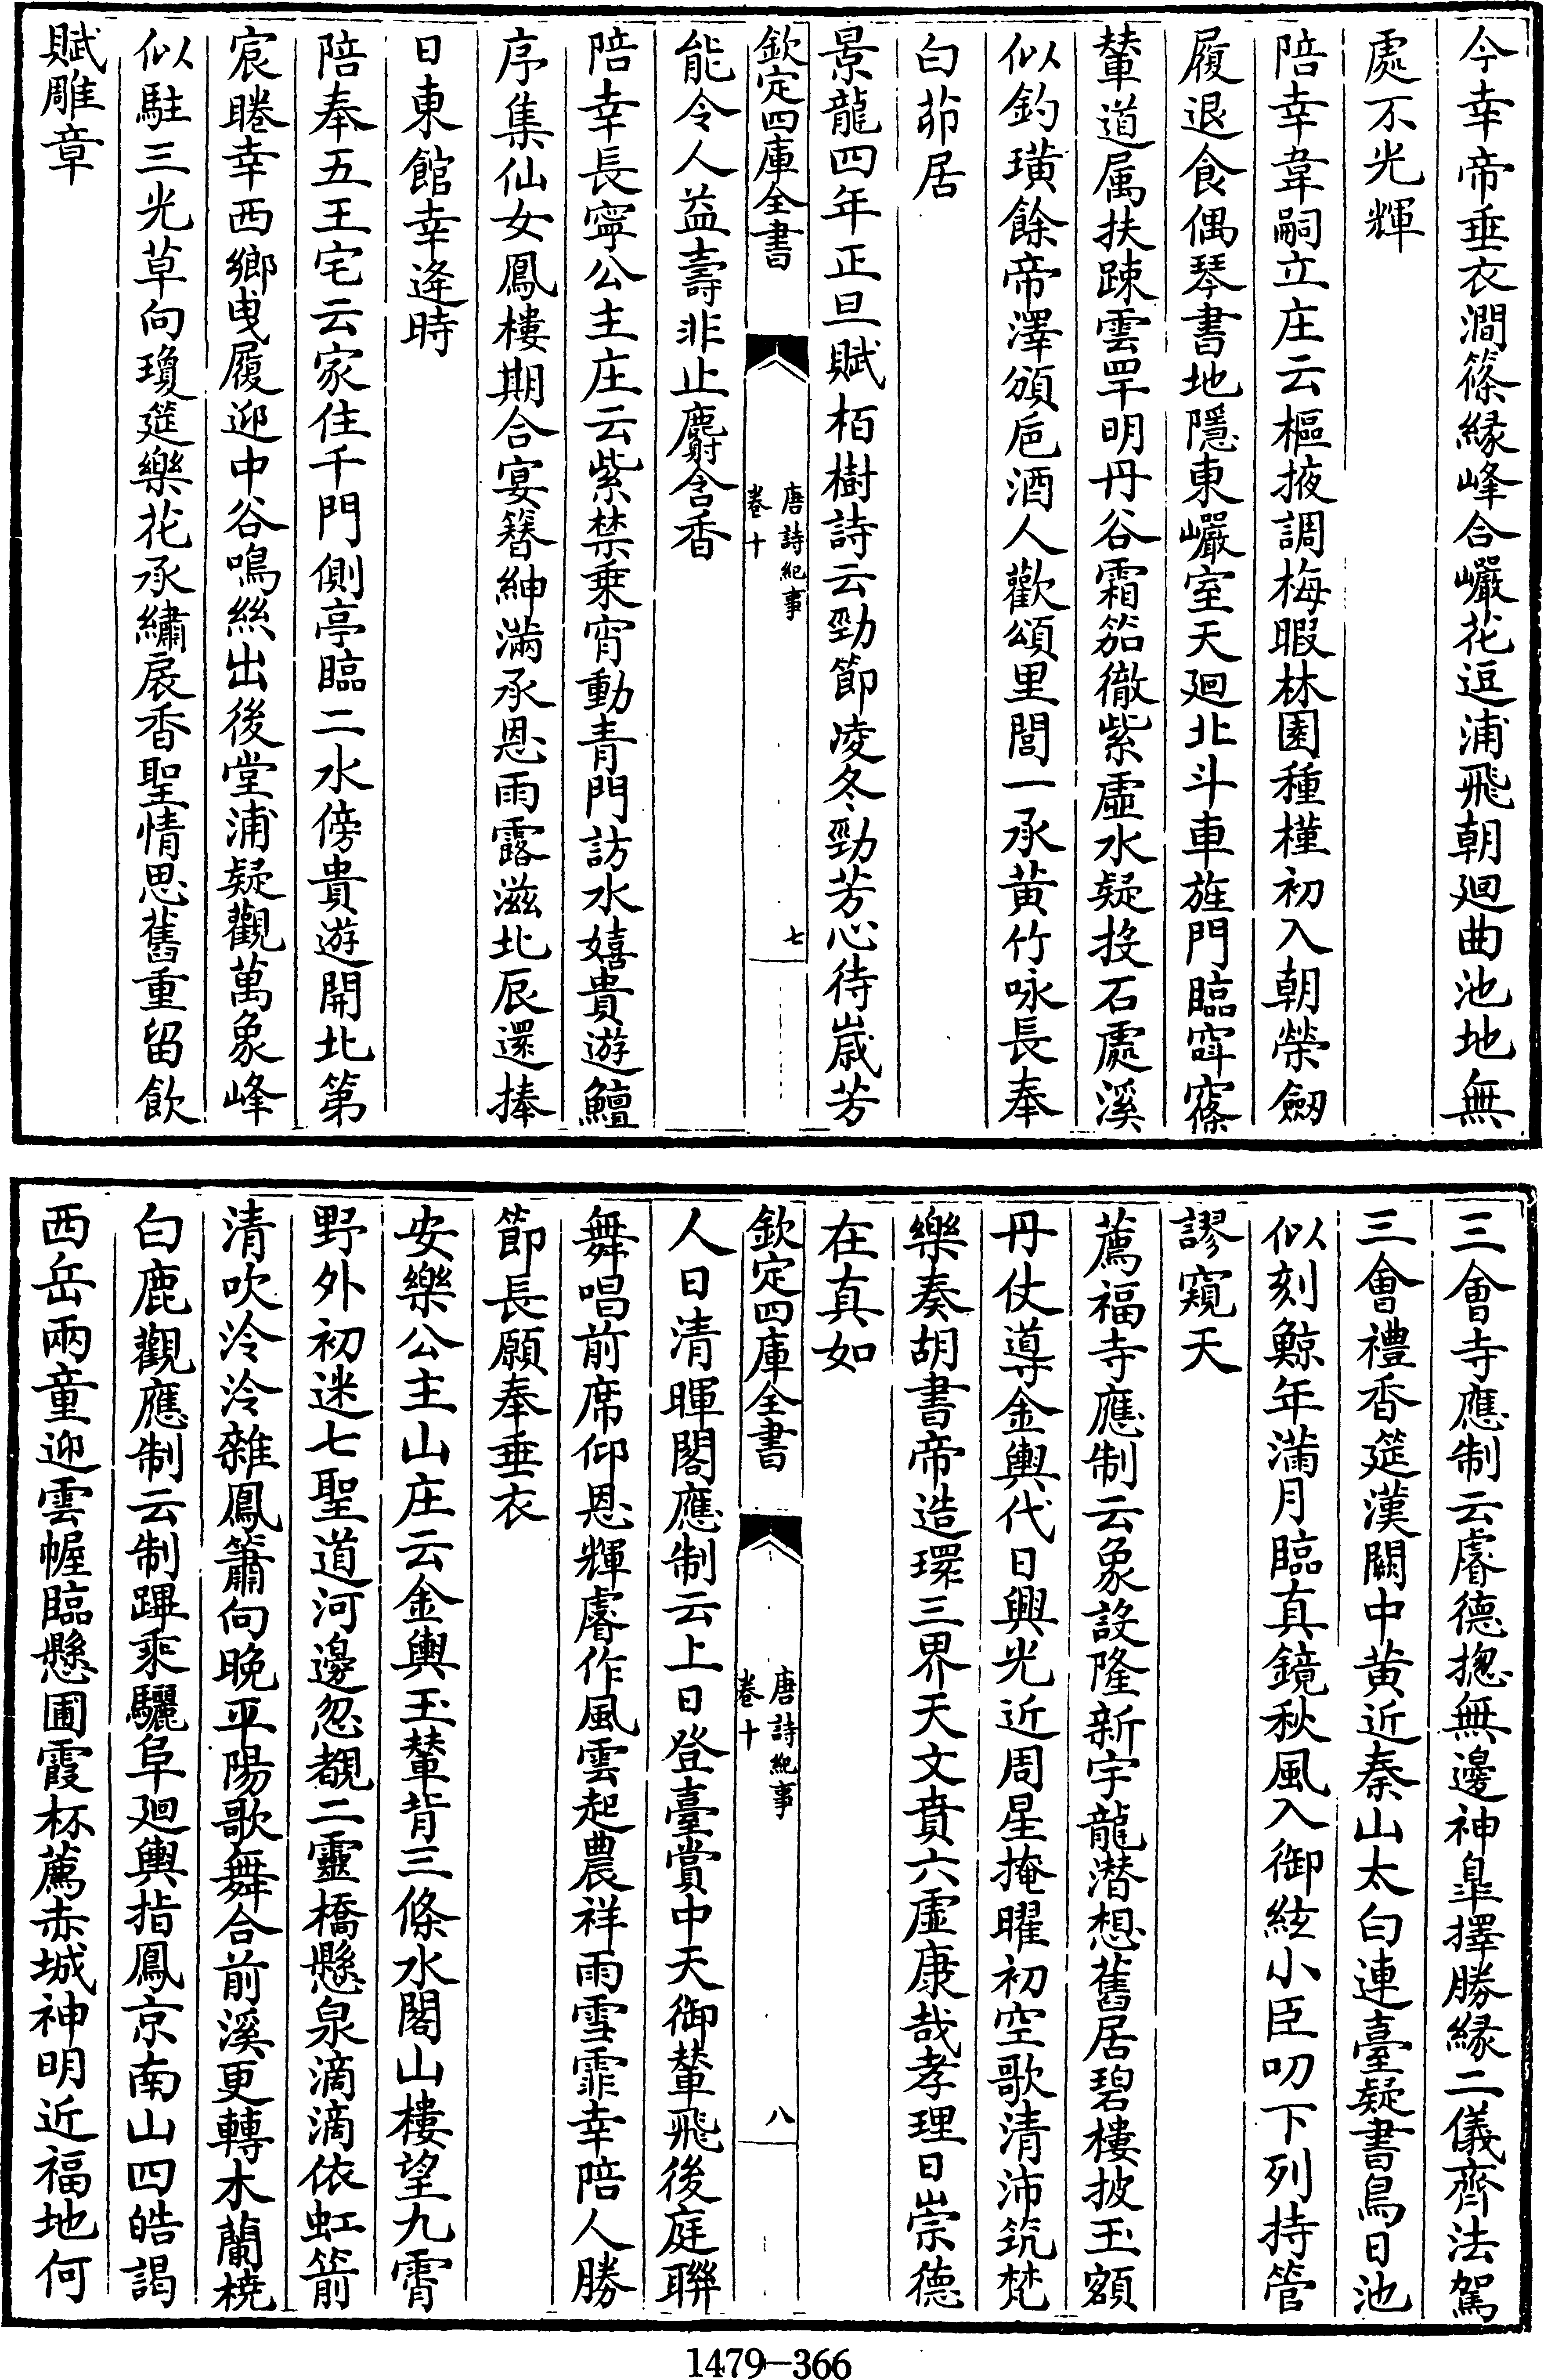 今幸帝垂衣澗篠緣峰合巖花逗浦飛朝廻曲池地無
處不光輝
陪幸韋嗣立庄云樞掖調梅暇林園種槿初入朝榮劔
履退食偶琴書地隱東巖室天廻北斗車旌門臨窪窱
輦道属扶踈雲罕明丹谷霜笳徹紫虛水疑投石處溪
似釣璜餘帝澤頒巵酒人歡頌里閭一承黄竹咏長奉
白茆居
景龍四年正旦賦栢樹詩云勁節凌冬勁芳心待嵗芳
欽定四庫全書
唐詩紀事
卷十
七
能令人益壽非止麝含香
陪幸長寧公主庄云紫禁乗宵動青門訪水嬉貴遊鱣
序集仙女鳳樓期合宴簪紳滿承恩雨露滋北辰還捧
日東館幸逢時
陪奉五王宅云家住千門側亭臨二水傍貴遊開北第
宸睠幸西鄉曳履迎中谷鳴絲出後堂浦疑觀萬象峰
似駐三光草向瓊筵樂花承繡扆香聖情思舊重留飲
賦雕章
三會寺應制云睿德揔無邊神臯擇勝緣二儀齊法駕
三會禮香筵漢闕中黄近秦山太白連臺疑書鳥日池
似刻鯨年滿月臨真鏡秋風入御絃小臣叨下列持管
謬窺天
薦福寺應制云象設隆新宇龍潜想舊居碧樓披玉額
丹仗導金輿代日興光近周星掩曜初空歌清沛筑梵
樂奏胡書帝造環三界天文賁六虛康哉孝理日崇德
在真如
欽定四庫全書
唐詩紀事
卷十
八
人日清暉閣應制云上日登臺賞中天御輦飛後庭聯
舞唱前席仰恩輝睿作風雲起農祥雨雪霏幸陪人勝
節長願奉垂衣
安樂公主山庄云金輿玉輦背三條水閣山樓望九霄
野外初迷七聖道河邊忽覩二靈橋懸泉滴滴依虹箭
清吹泠泠雜鳳簫向晚平陽歌舞合前溪更轉木蘭橈
白鹿觀應制云制蹕乘驪阜廻輿指鳳京南山四皓謁
西岳兩童迎雲幄臨懸圃霞杯薦赤城神明近福地何
1479—366